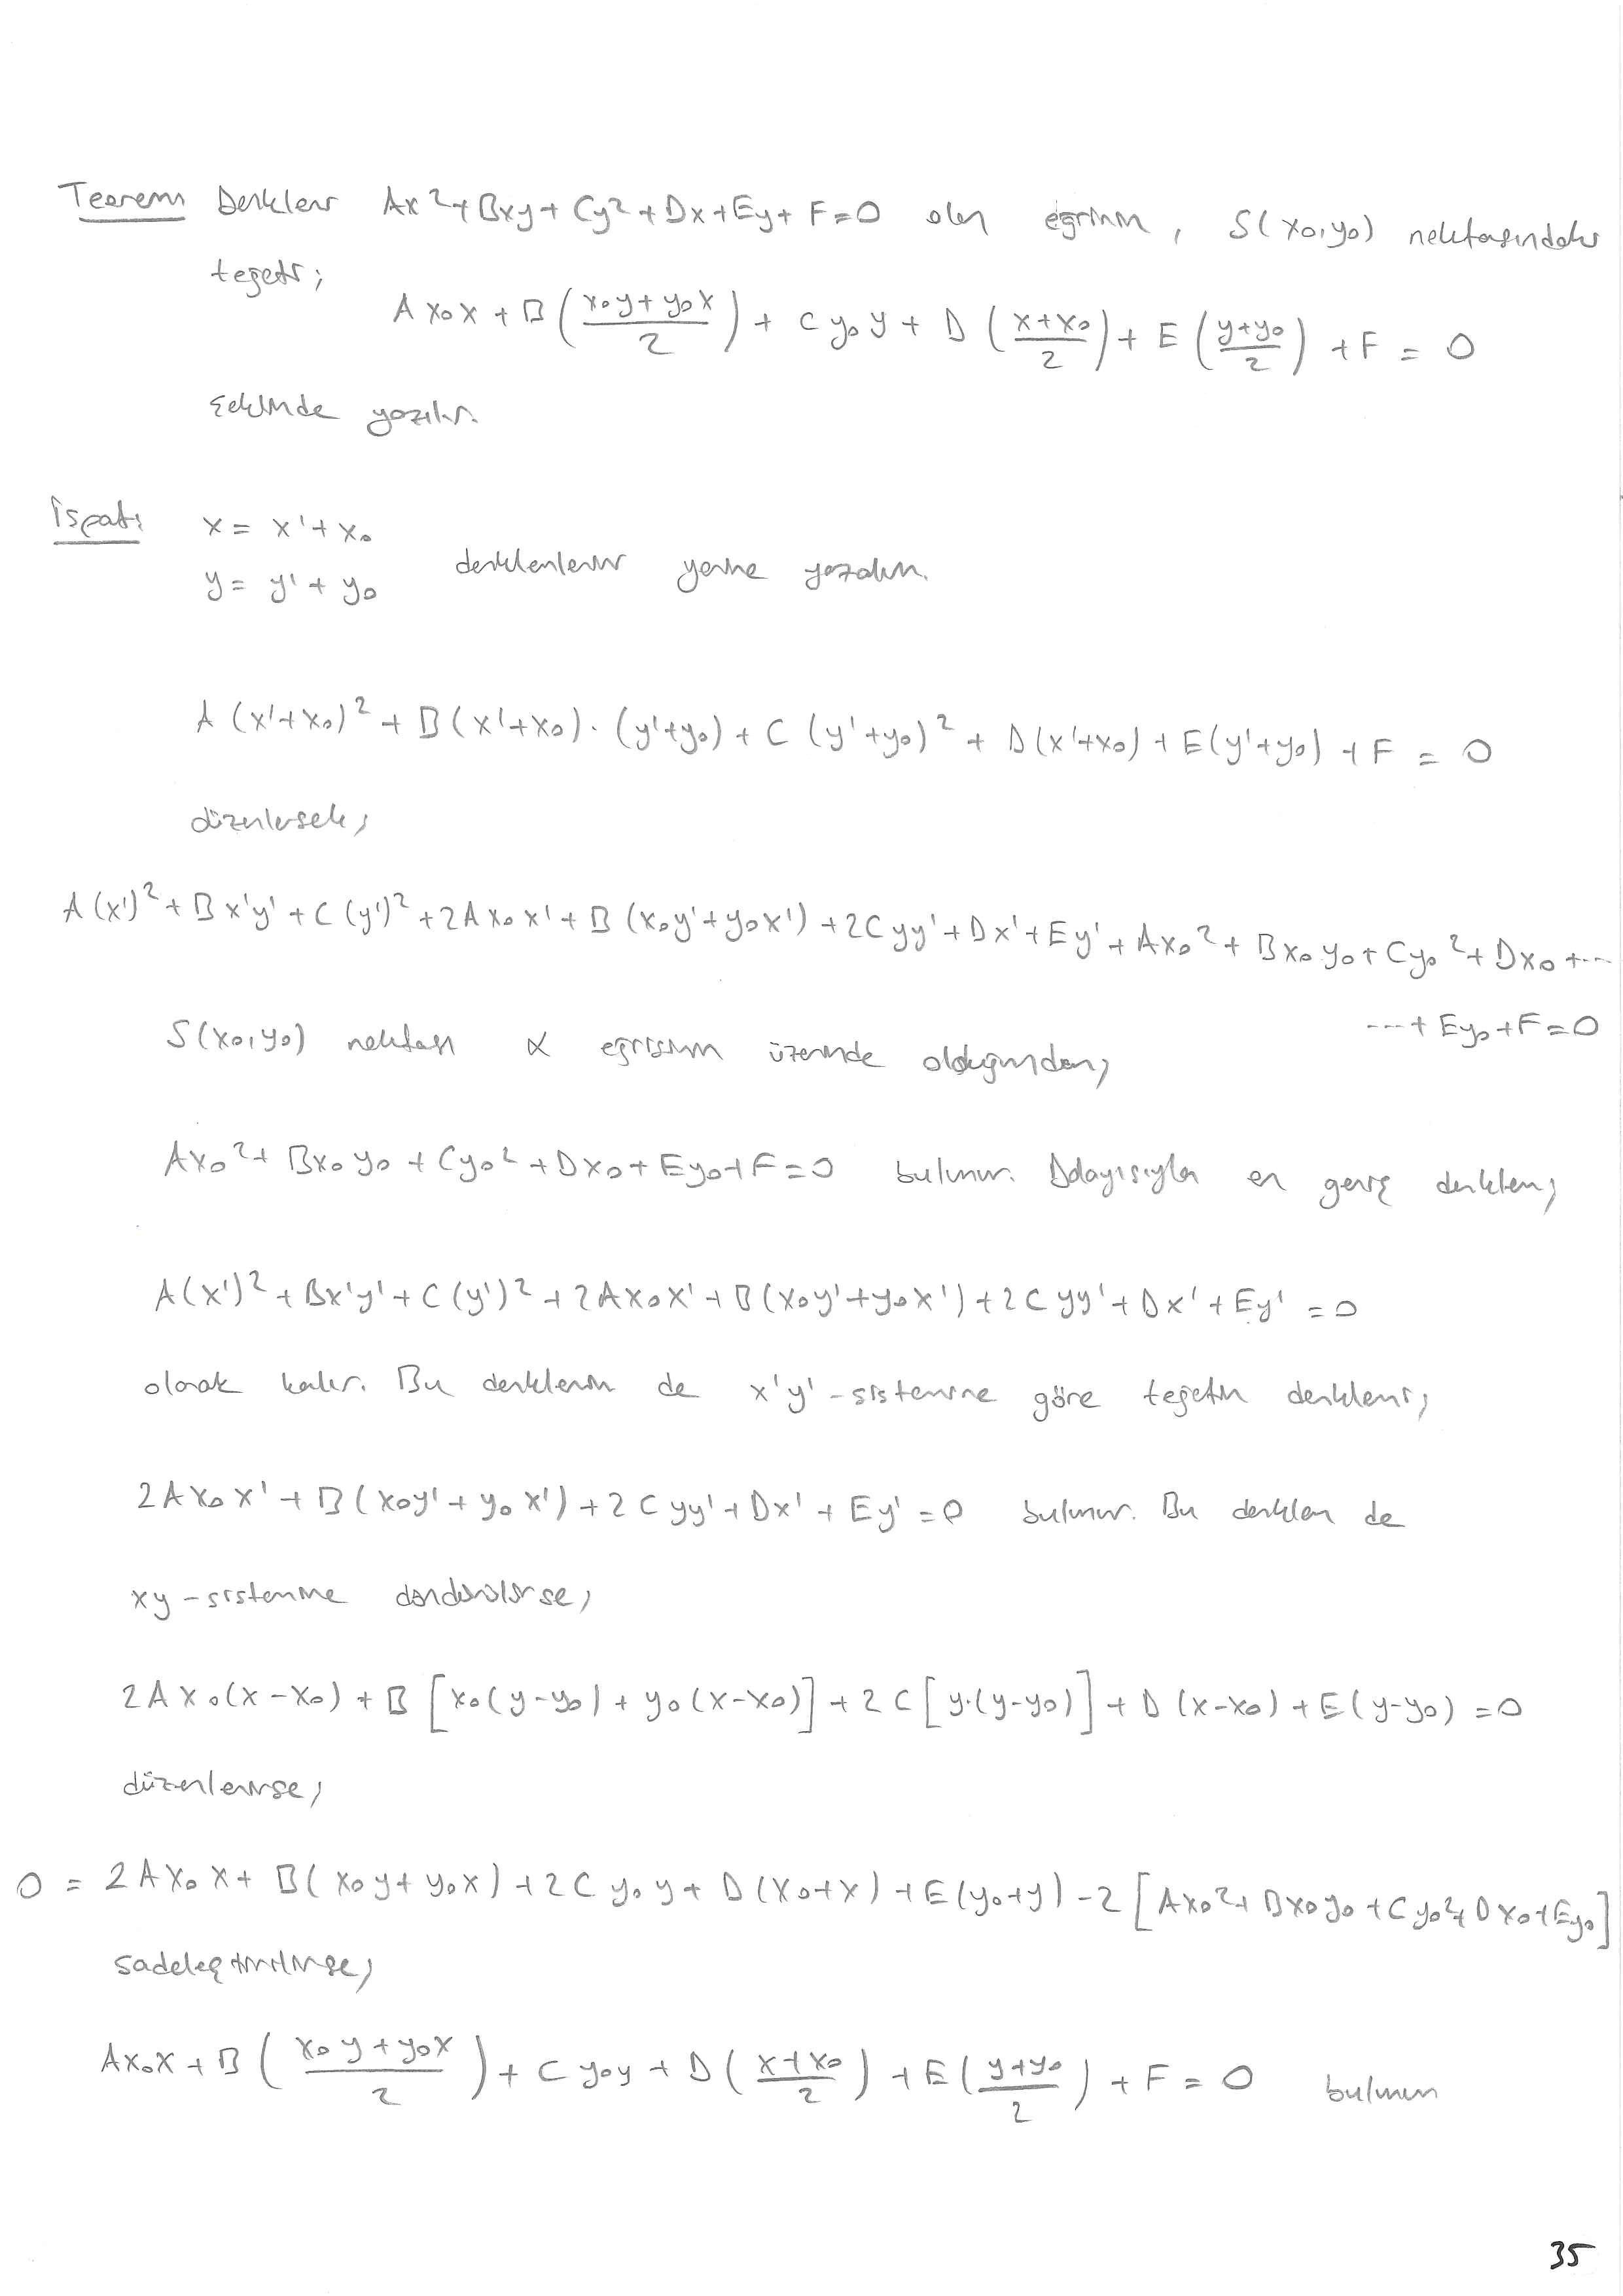 Teorem Denklemi Ax²+Bxy+Cy²+Dx+Ey+F=0 olan eğrinin, S(x₀,y₀) noktasındaki
teğeti;
A x₀x + B ( (x₀y + y₀x)/2 ) + C y₀y + D ( (x+x₀)/2 ) + E ( (y+y₀)/2 ) + F = 0
şeklinde yazılır.
İspat: x = x' + x₀
denklemlerini yerine yazalım.
y = y' + y₀
A (x'+x₀)² + B(x'+x₀)·(y'+y₀) + C (y'+y₀)² + D(x'+x₀) + E(y'+y₀) + F = 0
düzenlersek,
A(x')² + B x'y' + C(y')² + 2Ax₀x' + B (x₀y'+y₀x') + 2Cyy' + Dx' + Ey' + Ax₀² + Bx₀y₀ + Cy₀² + Dx₀ + ...
...+ Ey₀ + F = 0
S(x₀,y₀) noktası α eğrisinin üzerinde olduğundan,
Ax₀² + Bx₀y₀ + Cy₀² + Dx₀ + Ey₀ + F = 0 bulunur. Dolayısıyla en geniş denklem,
A(x')² + Bx'y' + C(y')² + 2Ax₀x' + B(x₀y'+y₀x') + 2Cyy' + Dx' + Ey' = 0
olarak kalır. Bu denklemin de x'y'-sistemine göre teğetin denklemi,
2Ax₀x' + B(x₀y' + y₀x') + 2Cyy' + Dx' + Ey' = 0 bulunur. Bu denklem de
xy-sistemine döndürülürse,
2Ax₀(x-x₀) + B [x₀(y-y₀) + y₀(x-x₀)] + 2C [y·(y-y₀)] + D(x-x₀) + E(y-y₀) = 0
düzenlenirse,
0 = 2Ax₀x + B(x₀y+y₀x) + 2Cy₀y + D(x₀+x) + E(y₀+y) - 2 [Ax₀² + Bx₀y₀ + Cy₀² + Dx₀ + Ey₀]
sadeleştirilirse,
Ax₀x + B ( (x₀y + y₀x)/2 ) + C y₀y + D ( (x+x₀)/2 ) + E ( (y+y₀)/2 ) + F = 0 bulunur
35